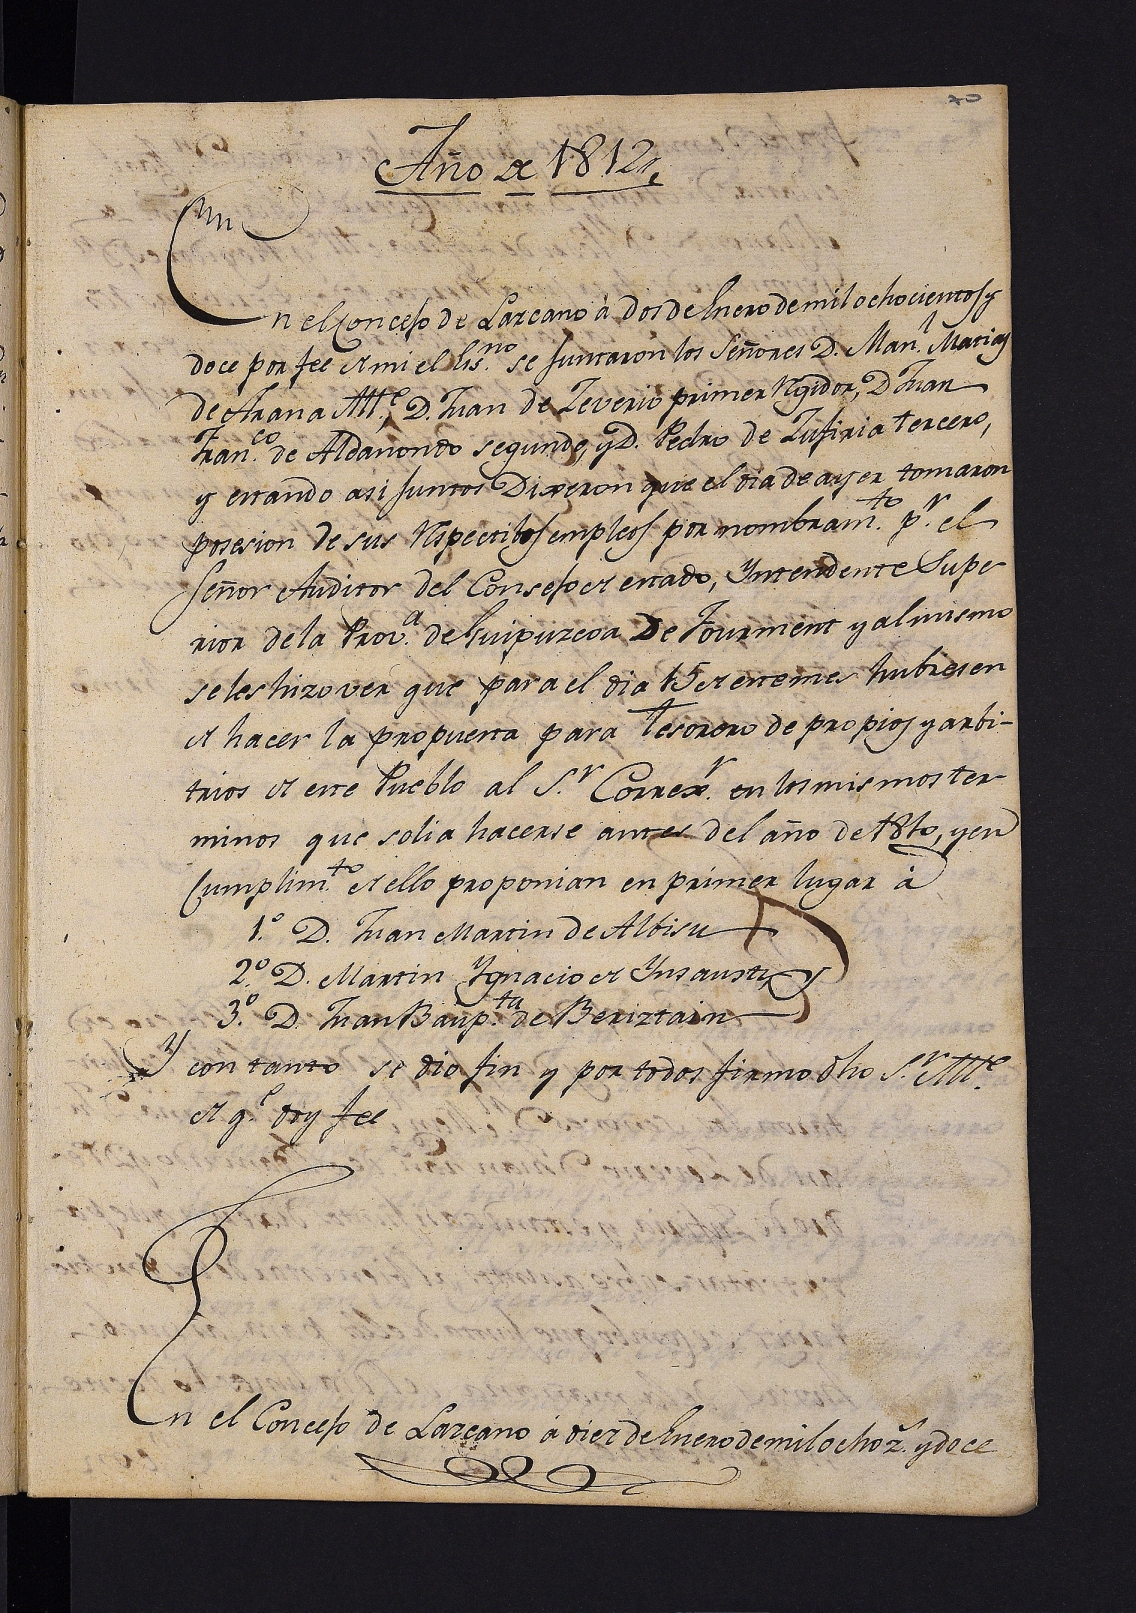 Año de 1812,
En el Concejo de Lazcano à dos de Enero de mil ochocientos y
doce por fee de mi el Es.no se juntaron los Señores D. Man.l Matias
de Arana Alt.e D. Juan de Zeverio primer Regidor, D Juan
Fran.co de Aldanondo segundo, y D. Pedro de Zufiria tercero,
y estando asi juntos Dixeron que el dia de ayer tomaron
posesion de sus respectibos empleos por nombram.to p.r el
Señor Auditor del Consejo de estado, Yntendente Supe
rior de la Prov.a de Guipuzcoa De Fourment y al mismo
se les hizo ver que para el dia 15 de este mes hubiesen
de hacer la propuesta para Tesorero de propios y arbi-
trios de este Pueblo al S.r Correx.r en los mismos ter
minos que solia hacerse antes del año de 1810, y en
Cumplim.to de ello proponian en primer lugar à
1.º D. Juan Martin de Albisu
2.º D. Martin Ygnacio de Ynsausti, y
3.º D. Juan Baup.ta de Beriztain
Y con tanto se dio fin y por todos firmo dho S.r Alt.e
de q.e doy fee
En el Concejo de Lazcano á diez de Enero de mil ochoz.s y doce